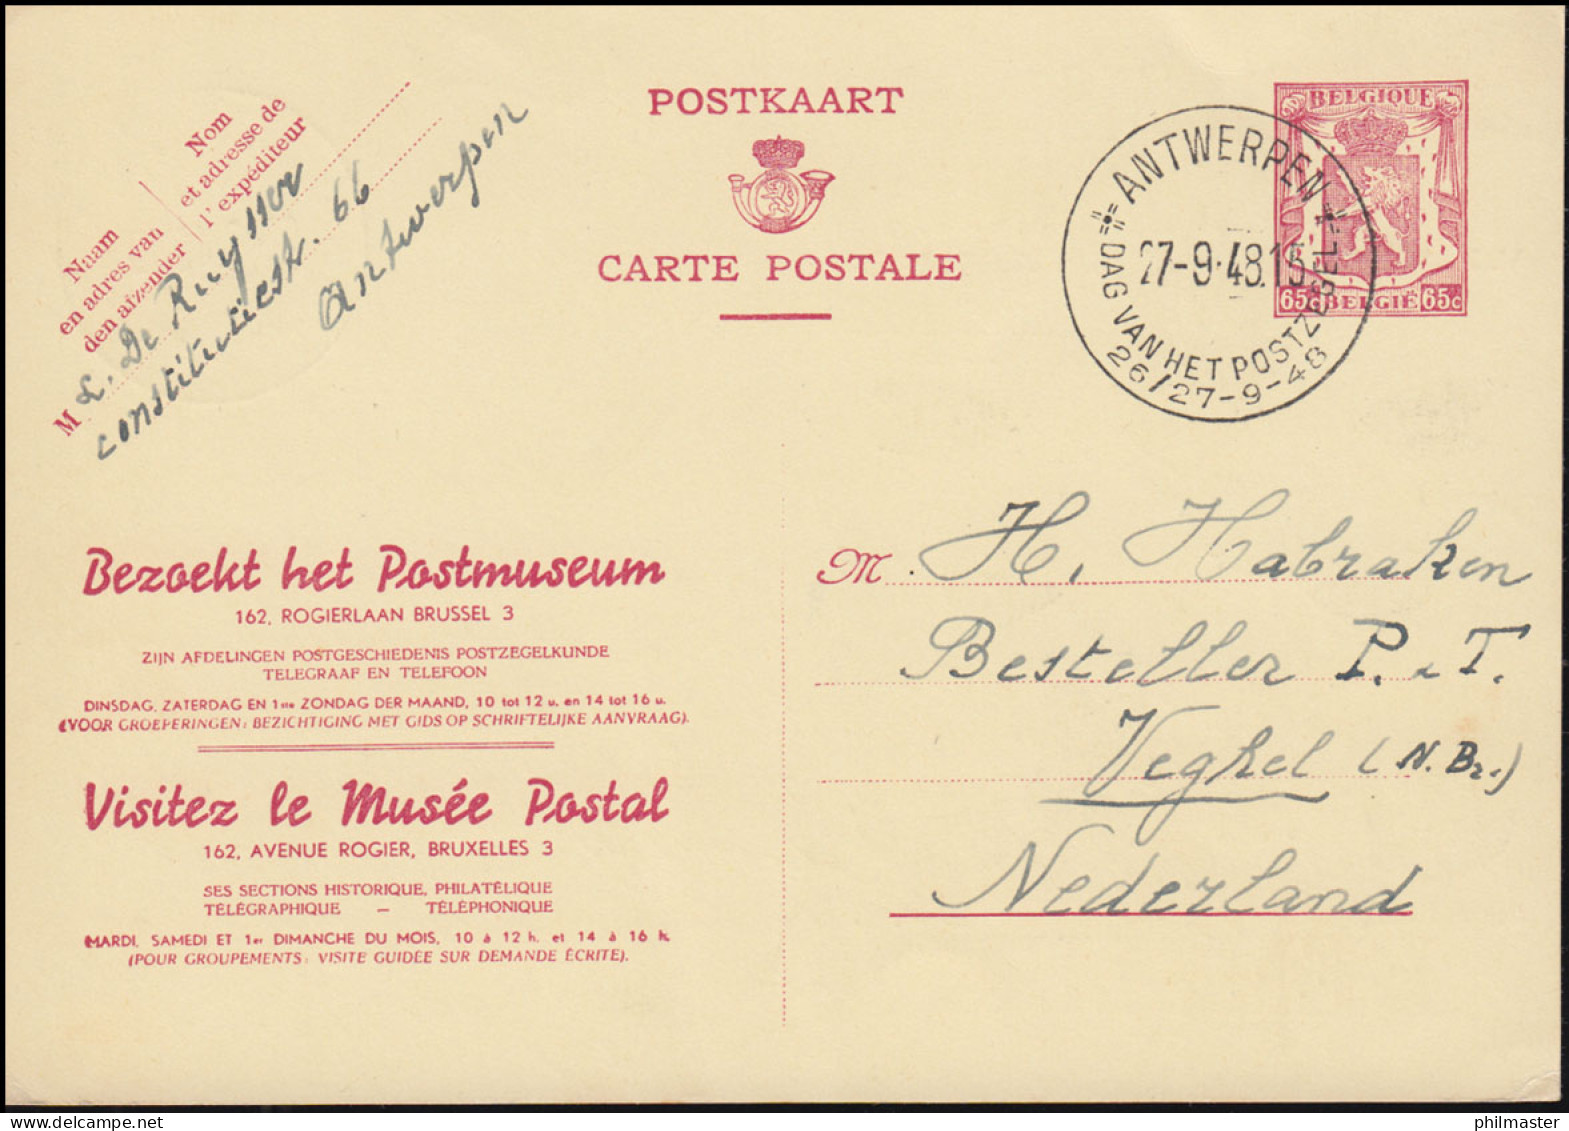 POSTKAART
CARTE POSTALE
Naam
en adres van
den afzender
Nom
et adresse de
l'expéditeur
M
L. De Ruysser
Constitutiestr. 66
Antwerpen
BELGIQUE
65c BELGIË 65c
ANTWERPEN
27-9-48.15
DAG VAN HET POSTZEGEL
26/27-9-48
Bezoekt het Postmuseum
162, ROGIERLAAN BRUSSEL 3
ZIJN AFDELINGEN POSTGESCHIEDENIS POSTZEGELKUNDE
TELEGRAAF EN TELEFOON
DINSDAG, ZATERDAG EN 1ste ZONDAG DER MAAND, 10 tot 12 u. en 14 tot 16 u.
(VOOR GROEPERINGEN: BEZICHTIGING MET GIDS OP SCHRIFTELIJKE AANVRAAG).
Visitez le Musée Postal
162, AVENUE ROGIER, BRUXELLES 3
SES SECTIONS HISTORIQUE, PHILATÉLIQUE
TÉLÉGRAPHIQUE — TÉLÉPHONIQUE
MARDI, SAMEDI ET 1er DIMANCHE DU MOIS, 10 à 12 h. et 14 à 16 h.
(POUR GROUPEMENTS: VISITE GUIDÉE SUR DEMANDE ÉCRITE).
M. H. Habraken
Besteller P. T.
Veghel (N. Br.)
Nederland
philmaster